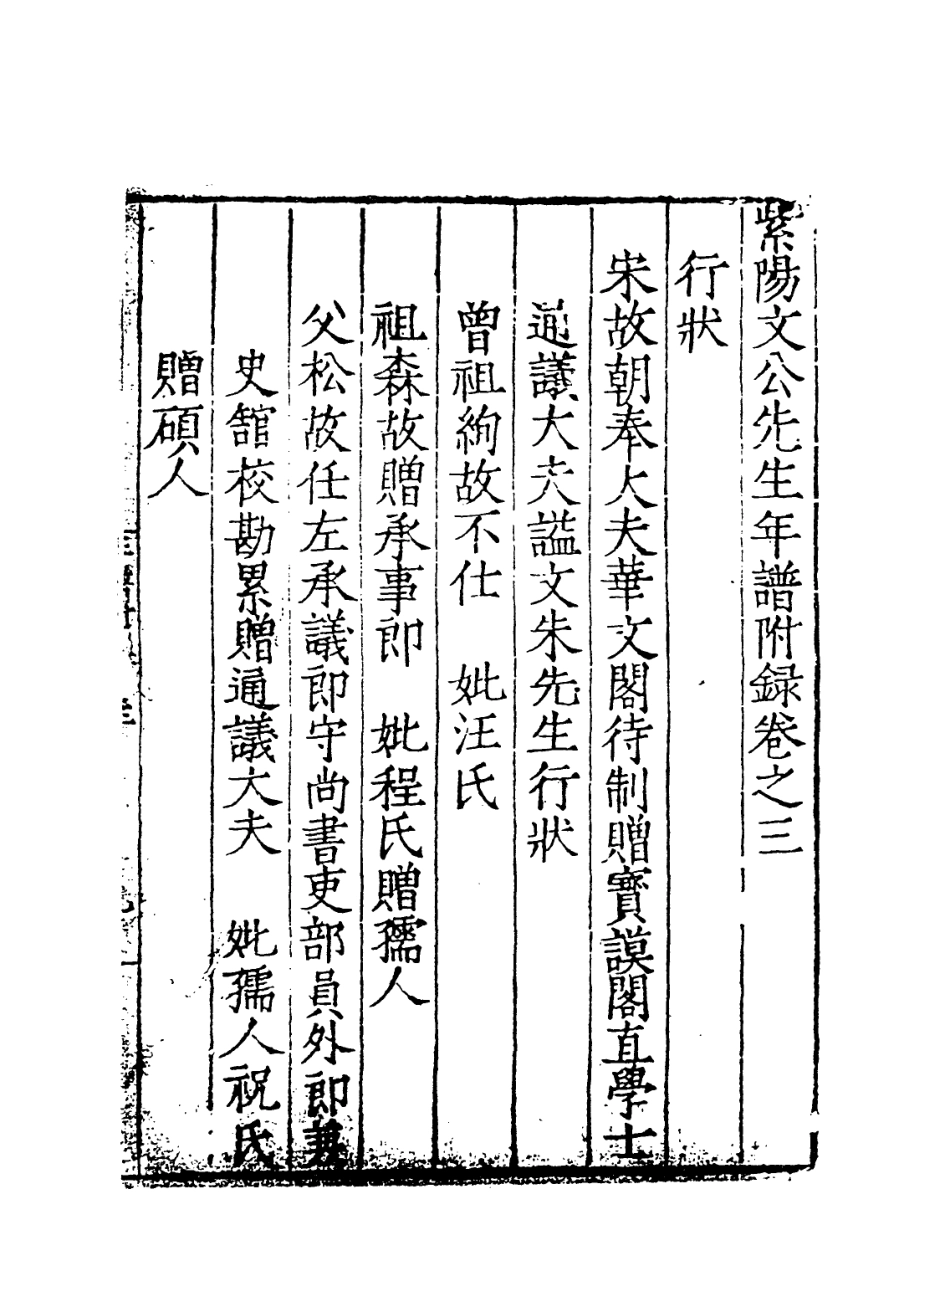 紫陽文公先生年譜附録卷之三
行狀
宋故朝奉大夫華文閣待制贈寳謨閣直學士
通議大夫謚文朱先生行狀
曽祖絢故不仕　妣汪氏
祖森故贈承事郎　妣程氏贈孺人
父松故任左承議郎守尚書吏部員外郎兼
史舘校勘累贈通議大夫　妣孺人祝氏
贈碩人